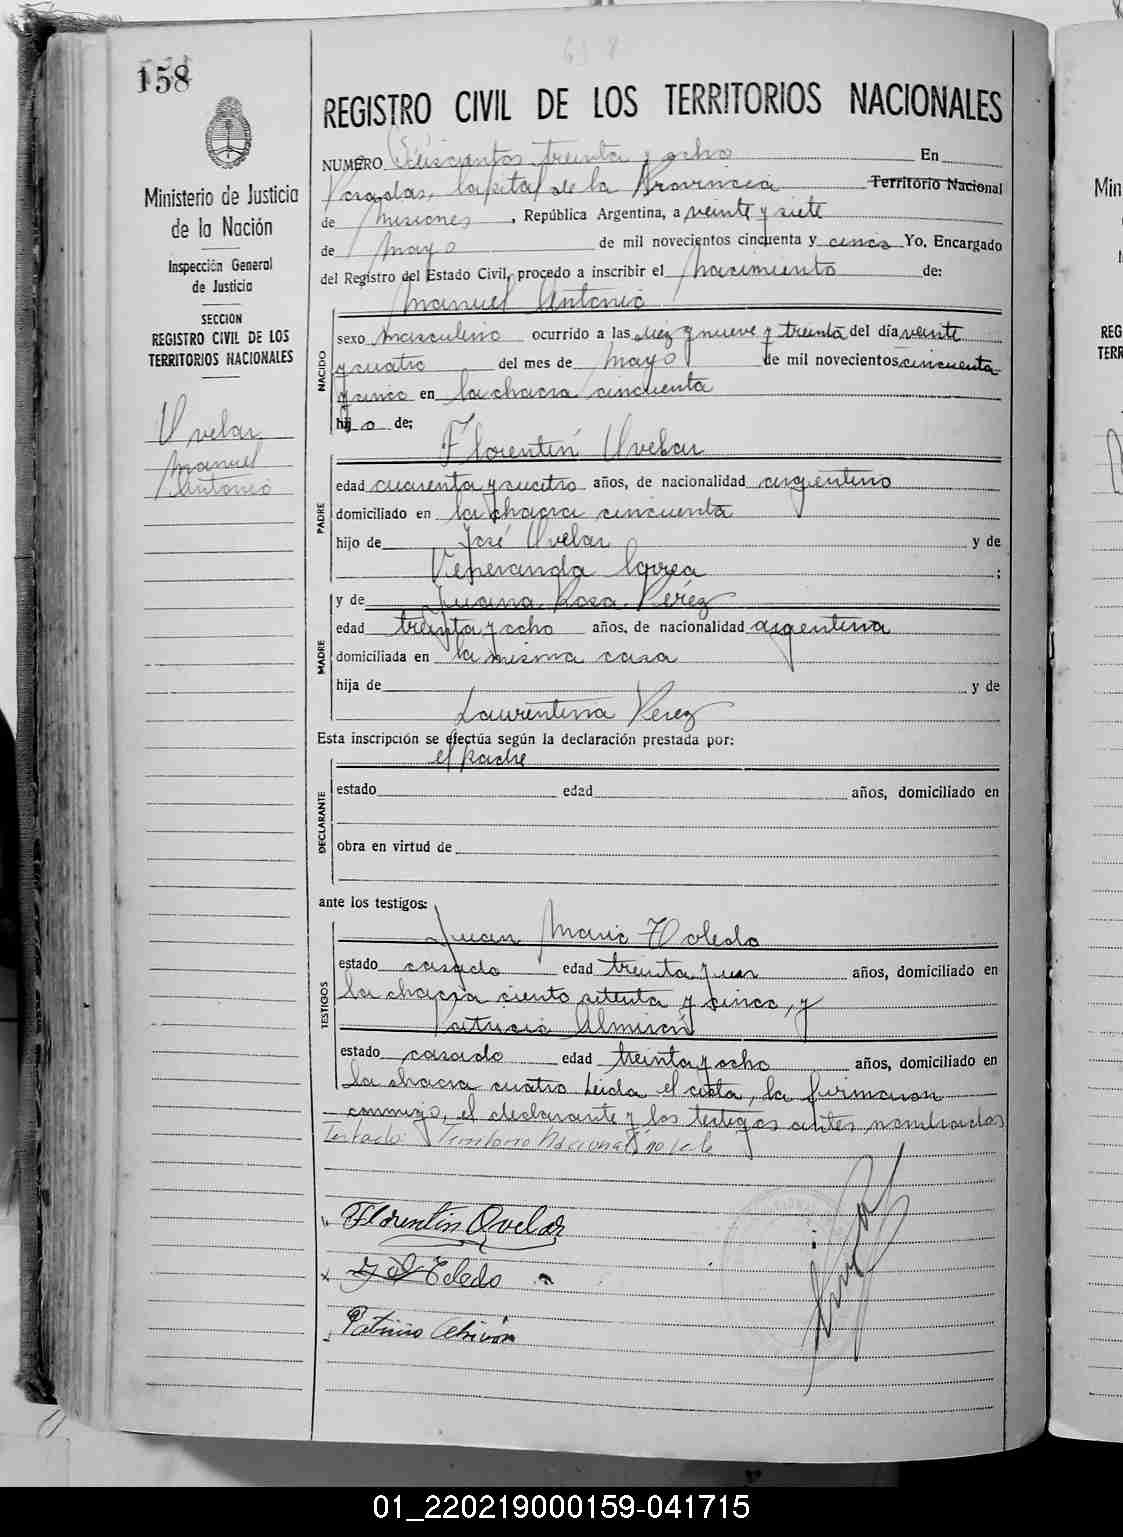 158
Ministerio de Justicia
de la Nación
Inspección General
de Justicia
SECCION
REGISTRO CIVIL DE LOS
TERRITORIOS NACIONALES
Uvelar
Manuel
Antonio
638
REGISTRO CIVIL DE LOS TERRITORIOS NACIONALES
NUMERO Seiscientos treinta y ocho En
Posadas, Capital de la Provincia Territorio Nacional
de Misiones, República Argentina, a veinte y siete
de Mayo de mil novecientos cincuenta y cinco Yo, Encargado
del Registro del Estado Civil, procedo a inscribir el Nacimiento de:
Manuel Antonio
NACIDO
sexo masculino ocurrido a las diez y nueve y treinta del día veinte
y cuatro del mes de Mayo de mil novecientos cincuenta
y cinco en la chacra cincuenta
hijo de:
Florentín Uvelar
PADRE
edad cuarenta y cuatro años, de nacionalidad argentino
domiciliado en la chacra cincuenta
hijo de José Uvelar y de
Veneranda Correa ;
y de Juana Rosa Pérez
MADRE
edad treinta y ocho años, de nacionalidad argentina
domiciliada en la misma casa
hija de y de
Laurentina Perez
Esta inscripción se efectúa según la declaración prestada por:
el padre
DECLARANTE
estado edad años, domiciliado en
obra en virtud de
ante los testigos:
Juan Mario Toledo
TESTIGOS
estado casado edad treinta y un años, domiciliado en
la chacra ciento setenta y cinco, y
Patricio Almirón
estado casado edad treinta y ocho años, domiciliado en
la chacra cuatro Leida el acta, la firmaron
conmigo, el declarante y los testigos antes nombrados
Testado: Territorio Nacional, no vale
Florentin Ovelar
Toledo
Patricio
01_220219000159-041715